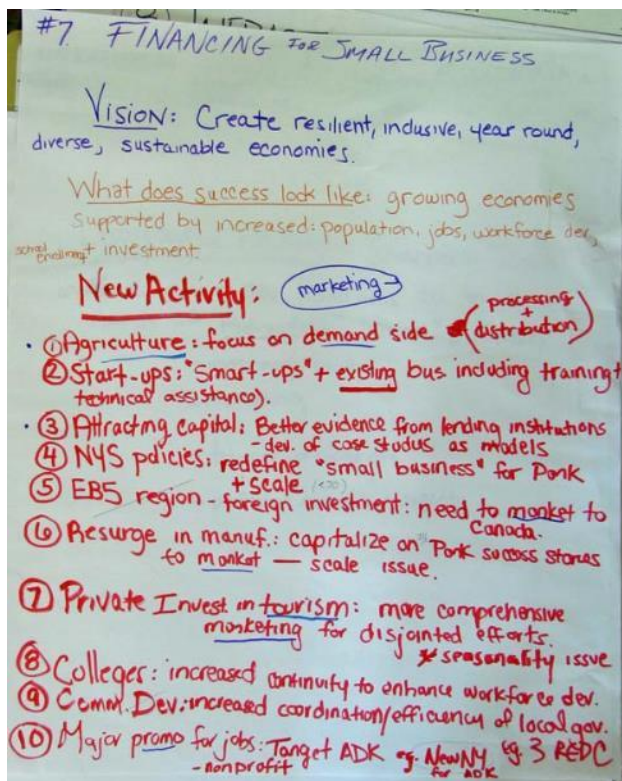 #7 FINANCING FOR SMALL BUSINESS
Vision: Create resilient, inclusive, year round,
diverse, sustainable economies.
What does success look like: growing economies
supported by increased: population, jobs, workforce dev,
school enrollment + investment.
New Activity: marketing →
(processing
+
distribution)
• ① Agriculture: focus on demand side
② Start-ups: "Smart-ups" + existing bus including training +
technical assistance).
• ③ Attracting capital: Better evidence from lending institutions
- dev. of case studies as models
④ NYS policies: redefine "small business" for Park
+ scale
⑤ EB5 region - foreign investment: need to market to
Canada.
⑥ Resurge in manuf.: capitalize on Park success stories
to market — scale issue.
⑦ Private Invest in tourism: more comprehensive
marketing for disjointed efforts.
* seasonality issue
⑧ Colleges: increased continuity to enhance workforce dev.
⑨ Comm. Dev.: increased coordination/efficiency of local gov.
⑩ Major promo for jobs: Target ADK eg. NewNY eg. 3 REDC
- nonprofit for ADK